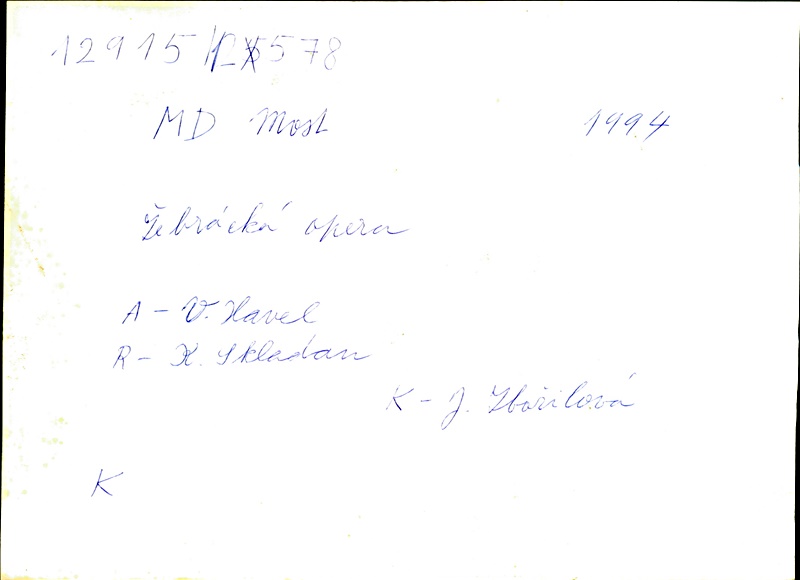 12915
MD Most 1994
Žebrácká opera
A - V. Havel
R - K. Skladan
K - J. Zbořilová
K